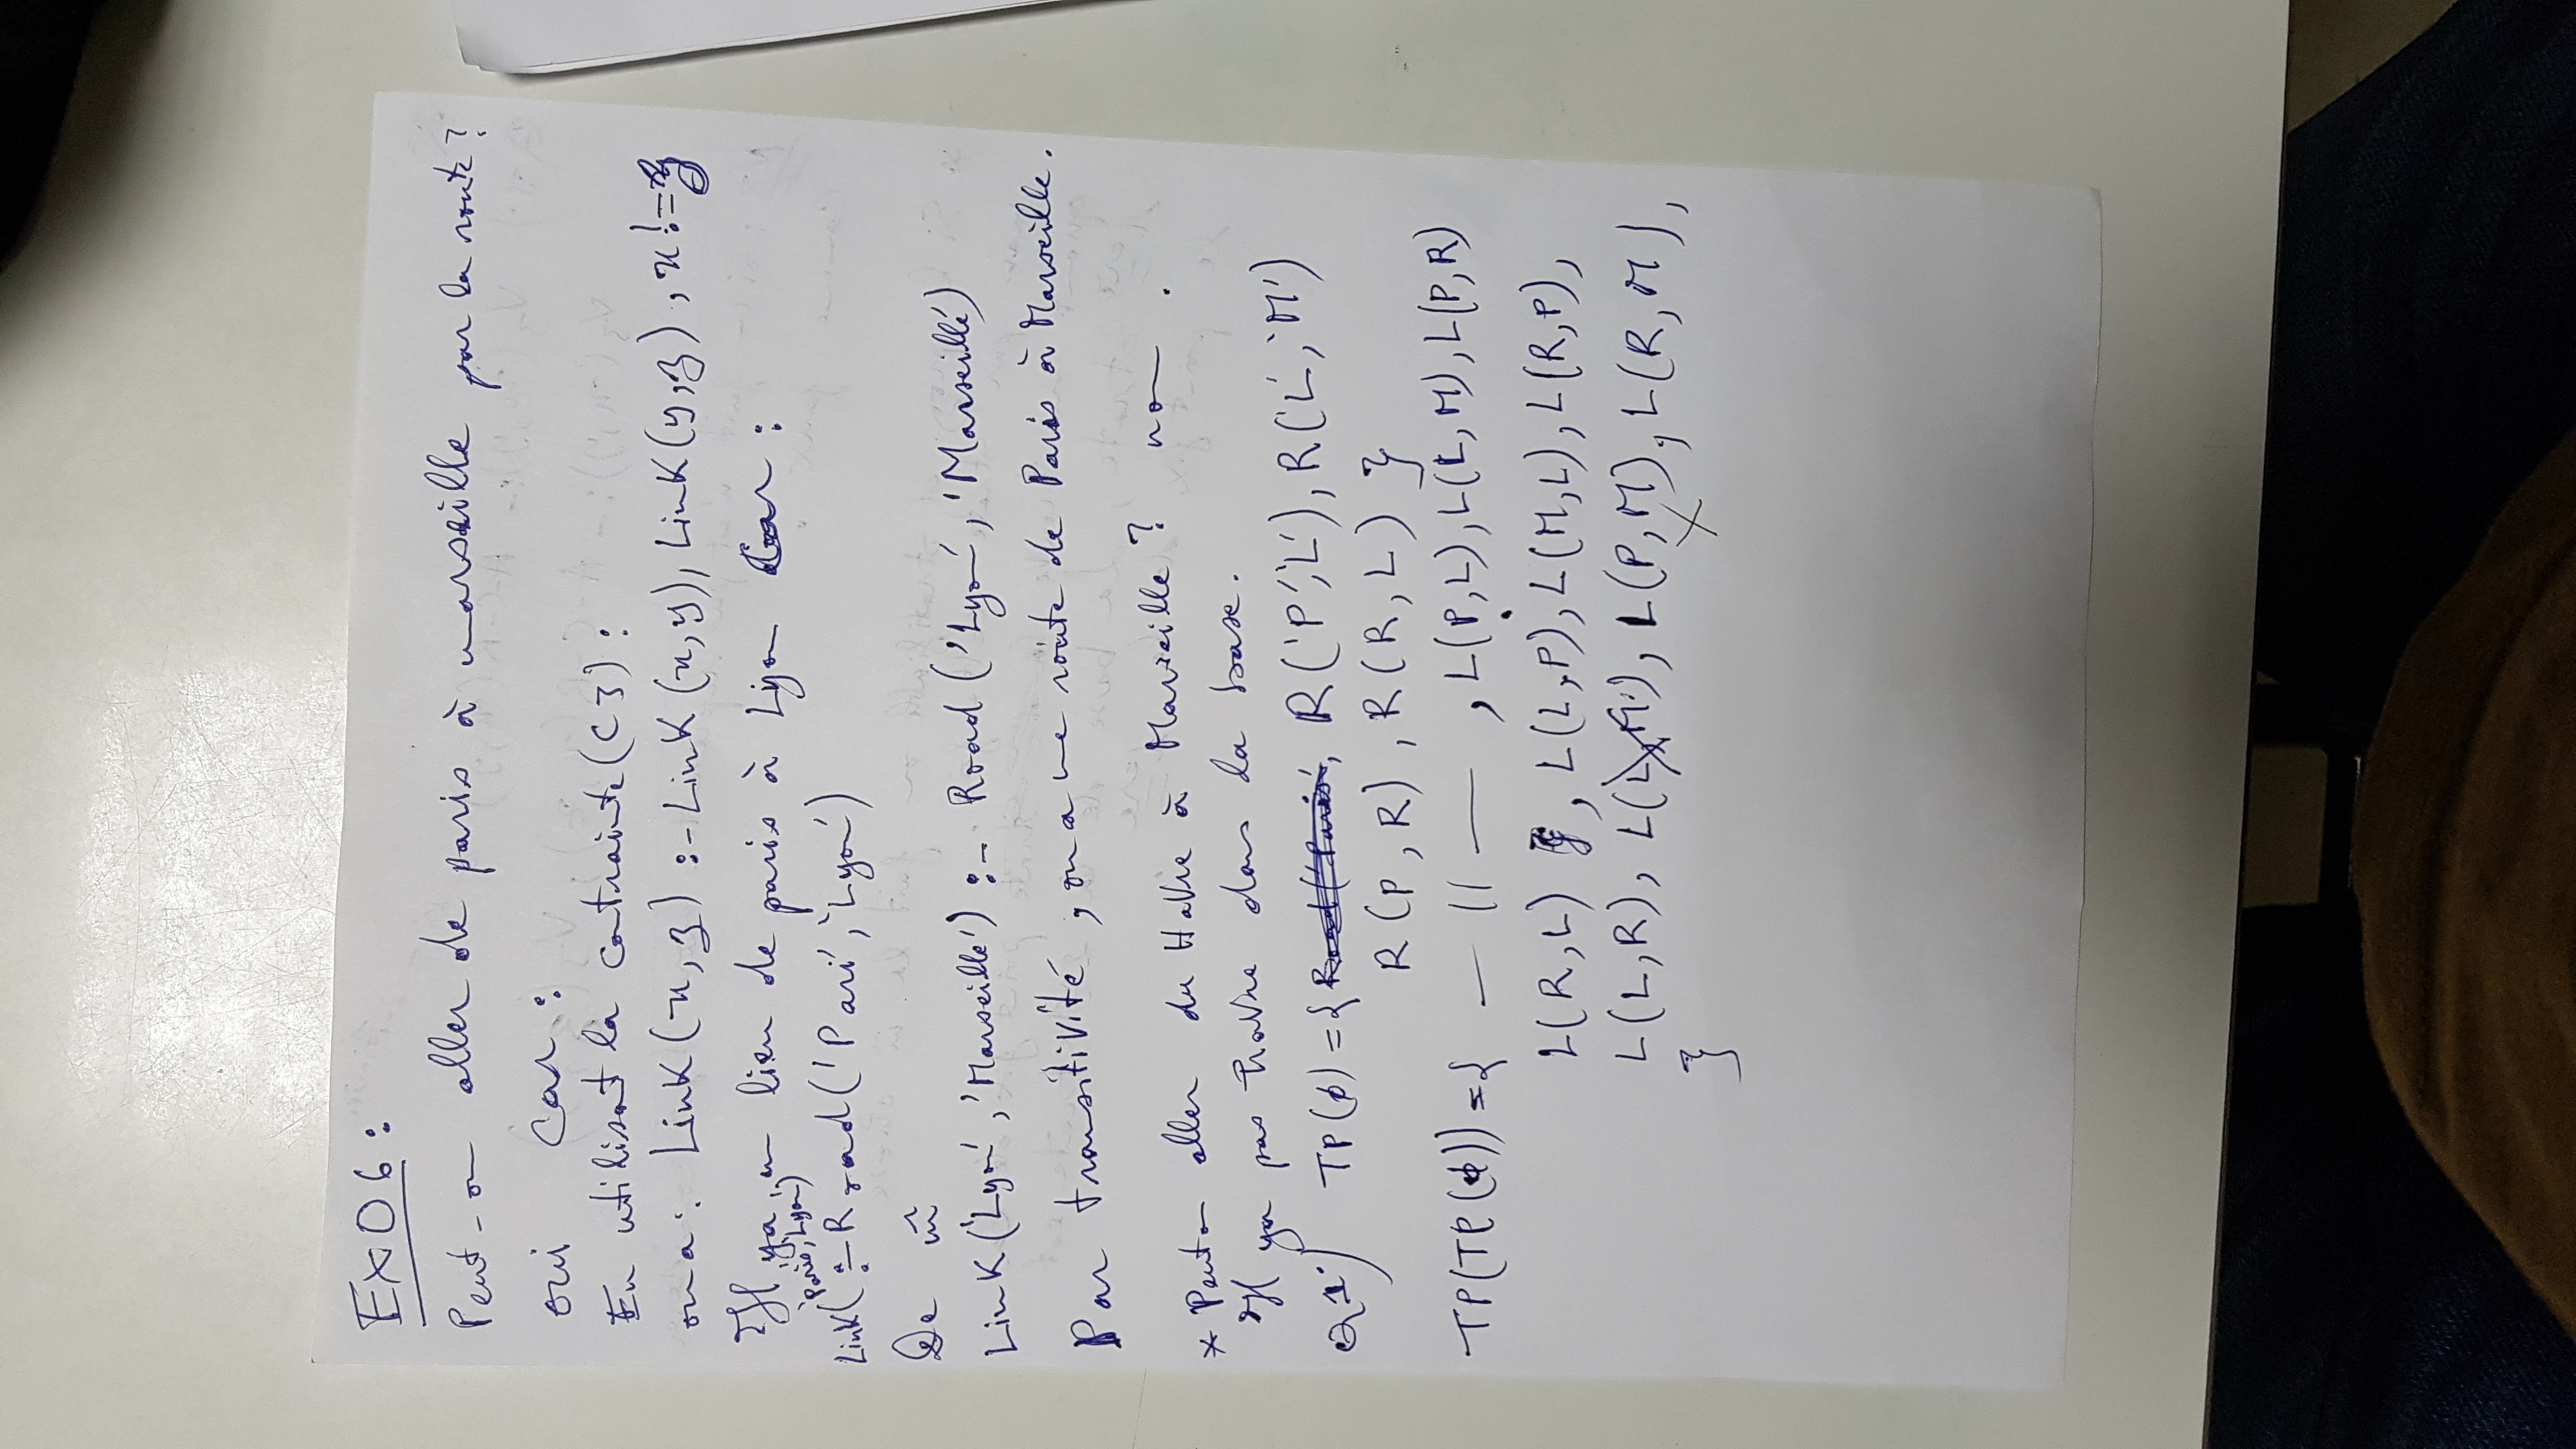 Ex06:
Peut-on aller de paris à marseille par la route?
oui Car:
En utilisat la contrainte (C3):
on a: Link(x,z) :- Link(x,y), Link(y,z), x!=z
Il ya un lien de paris à Lyon car:
Link('Paris','Lyon') :- Road('Paris','Lyon')
De m̂
Link('Lyon','Marseille') :- Road('Lyon','Marseille')
Par transitivité, on a une route de Paris à Marseille.
* Peut on aller du Havre à Marseille? non.
Il ya pas Havre dans la base.
Q1:) TP(ϕ)={ R('P','L'), R('L','M')
R(P,R), R(R,L) }
TP(TP(ϕ))={ — || — , L(P,L), L(L,M), L(P,R)
L(R,L), L(L,P), L(M,L), L(R,P),
L(L,R), L(L,M), L(P,M), L(R,M),
}